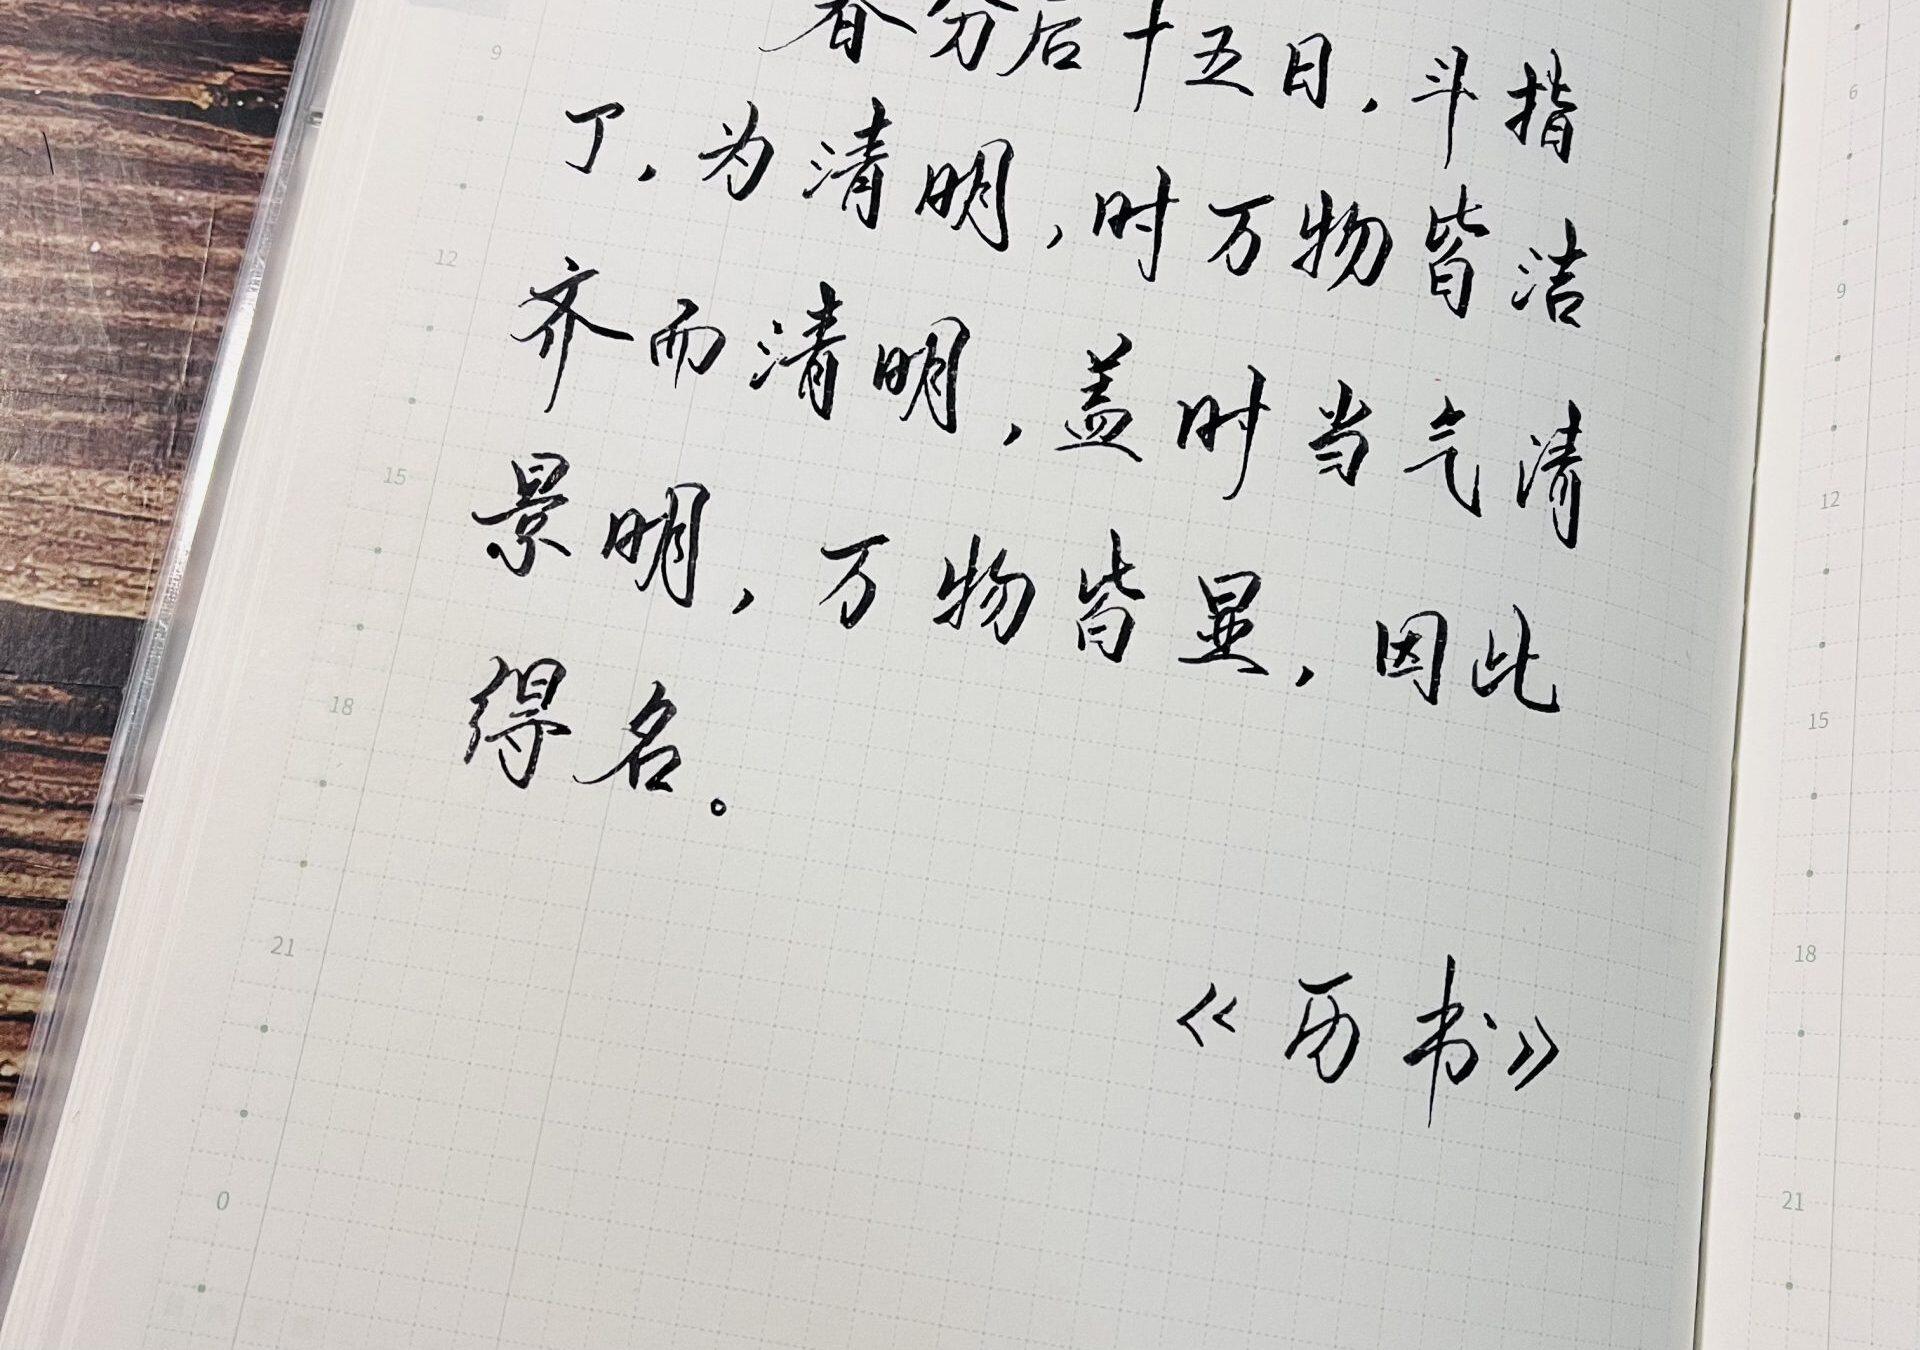 春分后十五日，斗指
丁，为清明，时万物皆洁
齐而清明，盖时当气清
景明，万物皆显，因此
得名。
《历书》
9
12
15
18
21
0
6
9
12
15
18
21